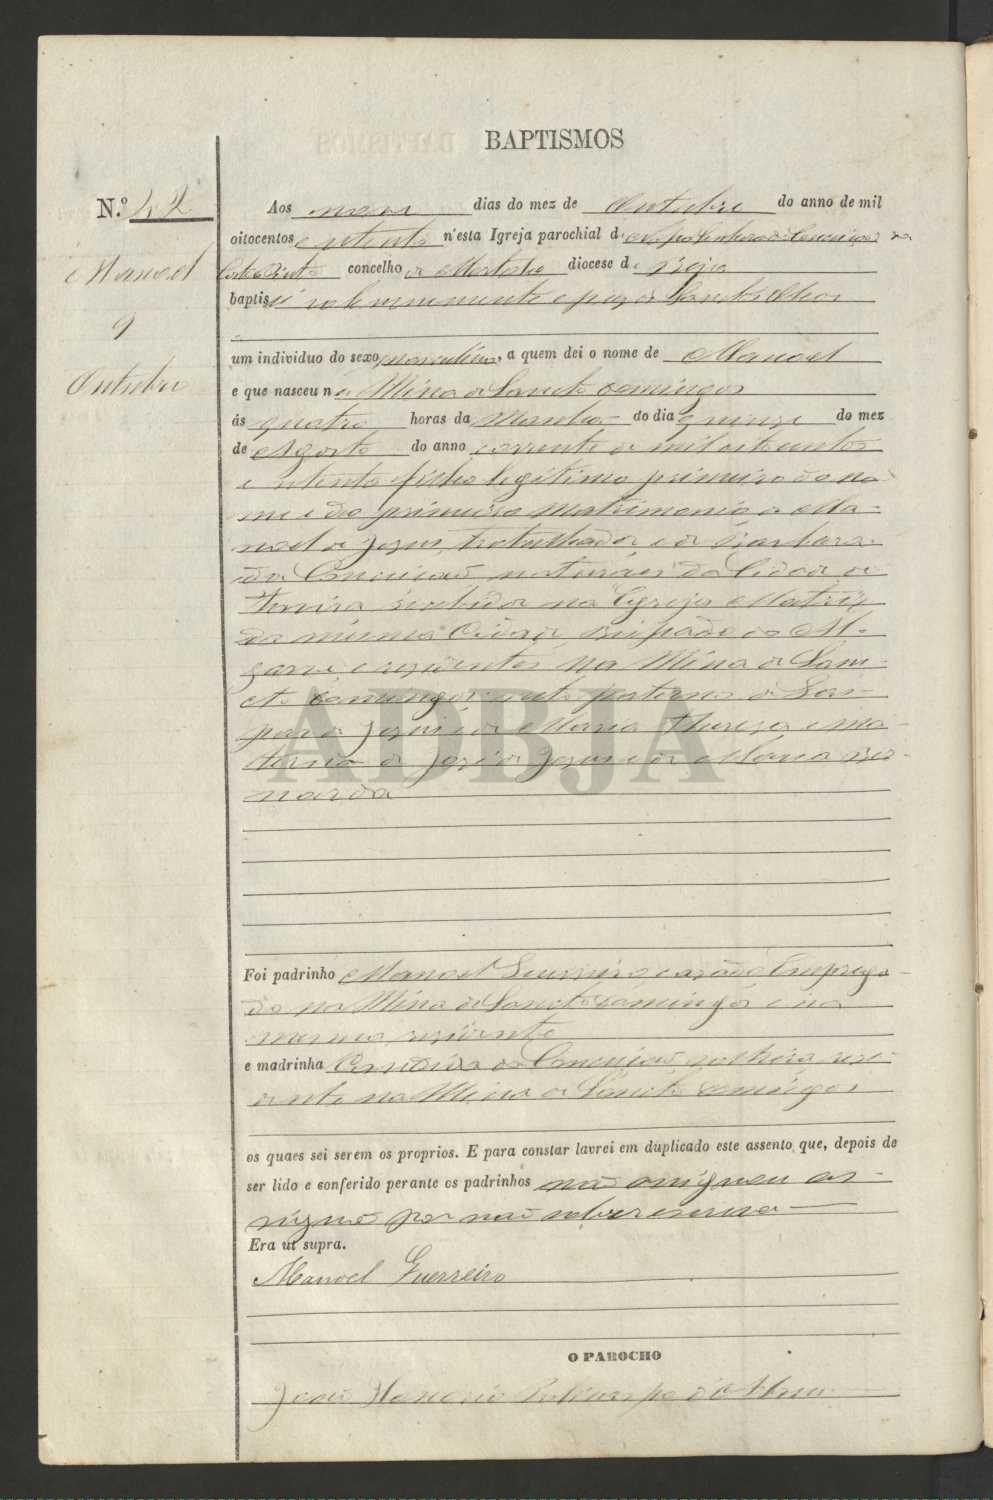 BAPTISMOS
N.º 42
Manoel
9
Outubro
Aos nove dias do mez de Outubro do anno de mil
oitocentos e oitenta n'esta Igreja parochial de Nossa Senhora da Conceição da
Corte do Pinto concelho de Mertola diocese de Beja
baptisei solemnemente e puz os Sanctos Oleos
um individuo do sexo masculino, a quem dei o nome de Manoel
e que nasceu na Mina de Sancto Domingos
ás quatro horas da Manhã do dia quinze do mez
de Agosto do anno corrente de mil oitocentos
e oitenta filho legitimo primeiro do no
me e do primeiro Matrimonio de Ma-
noel de Jezus, trabalhador e de Barbara
da Conceição naturaes da Cidade de
Tavira recebidos na Igreja Matriz
da mesma Cidade Bispado do Al-
garve e rezidentes na Mina de San-
cto Domingos neto paterno de Gas-
par de Jezus e de Maria Thereza e ma-
terno de José de Jezus e de Maria Ber-
narda
Foi padrinho Manoel Guerreiro cazado Emprega-
do na Mina de Sancto Domingos e na
mesma rezidente
e madrinha da Conceição solteira rezi-
dente na Mina de Sancto Domingos
os quaes sei serem os proprios. E para constar lavrei em duplicado este assento que, depois de
ser lido e conferido perante os padrinhos
por não saber escrever
Era ut supra.
Manoel Guerreiro
O PAROCHO
ADBJA